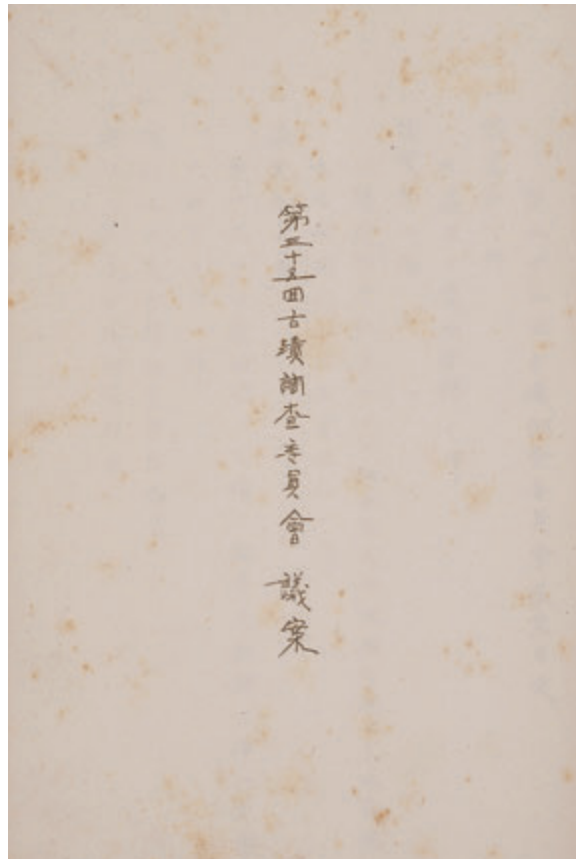 第三十五回古蹟調査委員會 議案